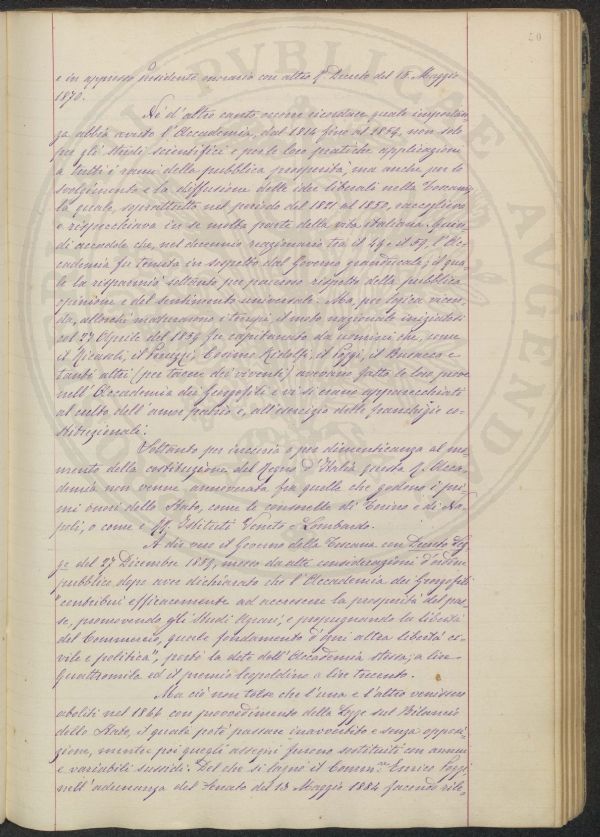 50
e in appresso Presidente onorario con altro R. Decreto del 15 Maggio
1870.
Nè d'altro canto occorre ricordare quale importan-
za abbia avuto l'Accademia, dal 1814 fino al 1859, non solo
per gli studi scientifici e per le loro pratiche applicazioni
a tutti i rami della pubblica prosperità, ma anche per lo
svolgimento e la diffusione delle idee liberali nella Toscana,
la quale, soprattutto nel periodo del 1821 al 1850, raccoglieva
e rispecchiava in se molta parte della vita italiana. Quin-
di accadde che, nel decennio reazionario tra il 49 e il 59, l'Ac-
cademia fu tenuta in sospetto dal Governo granducale; il qua-
le la risparmiò soltanto per pauroso rispetto della pubblica
opinione e del sentimento universale. Ma, per logica vicen-
da, allorchè maturarono i tempi, il moto nazionale iniziatosi
col 27 Aprile del 1859 fu capitanato da uomini che, come
il Ricasoli, il Peruzzi, Cosimo Ridolfi, il Poggi, il Busacca e
tanti altri (per tacere dei viventi) avevano fatto le loro prove
nell'Accademia dei Georgofili e vi si erano apparecchiati
al culto dell'amor patrio e, all'esercizio delle franchigie co-
stituzionali.
Soltanto per incuria o per dimenticanza al mo-
mento della costituzione del Regno d'Italia questa R. Acca-
demia non venne annoverata fra quelle che godono i pri-
mi onori dello Stato, come le consorelle di Torino e di Na-
poli, o come i RR. Istituti Veneto e Lombardo.
A dir vero il Governo della Toscana con Decreto Leg-
ge del 27 Dicembre 1859, mosso da alte considerazioni d'ordine
pubblico dopo aver dichiarato che l'Accademia dei Georgofili
"contribuì efficacemente ad accrescere la prosperità del pae-
se, promovendo gli Studi Agrari, e propugnando la libertà
del Commercio, quale fondamento d'ogni altra libertà ci-
vile e politica", portò la dote dell'Accademia stessa, a lire
Quattromila ed il premio Leopoldino a lire trecento.
Ma ciò non tolse che l'una e l'altro venissero
aboliti nel 1866 con provvedimento della Legge sul Bilancio
dello Stato, il quale potè passare inavvertito e senza opposi-
zione, mentre poi quegli assegni furono sostituiti con annui
e variabili sussidi. Del che si lagnò il Comm.re Enrico Poggi
nell'adunanza del Senato del 13 Maggio 1884 facendo rile-